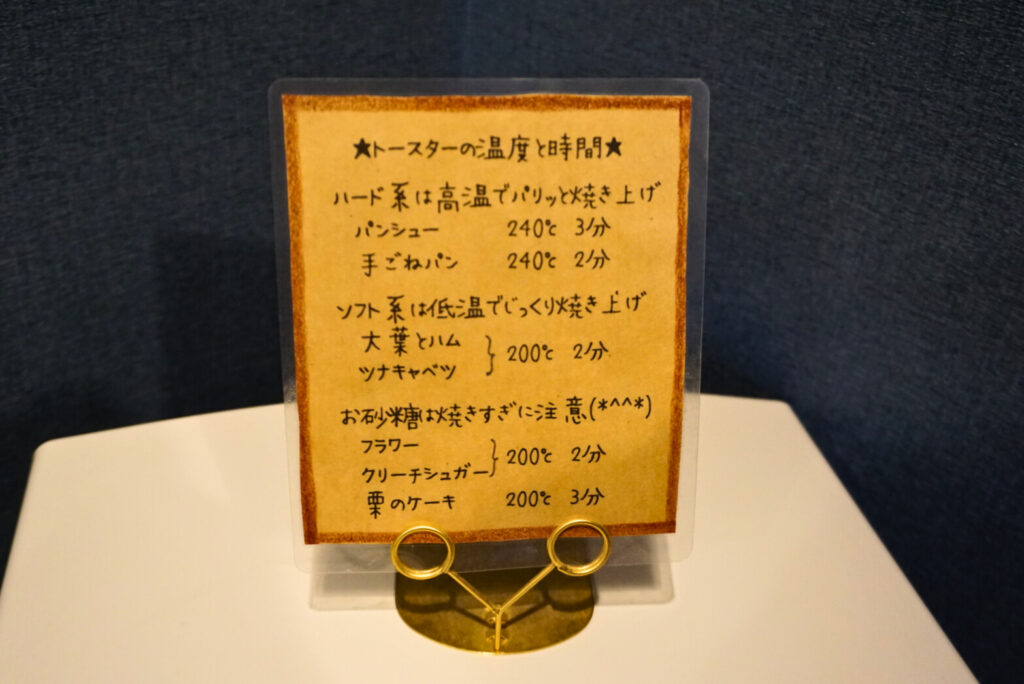 ★トースターの温度と時間★
ハード系は高温でパリッと焼き上げ
パンシュー 240℃ 3分
手ごねパン 240℃ 2分
ソフト系は低温でじっくり焼き上げ
大葉とハム
ツナキャベツ } 200℃ 2分
お砂糖は焼きすぎに注意(*^^*)
フラワー
クリーチシュガー } 200℃ 2分
栗のケーキ 200℃ 3分